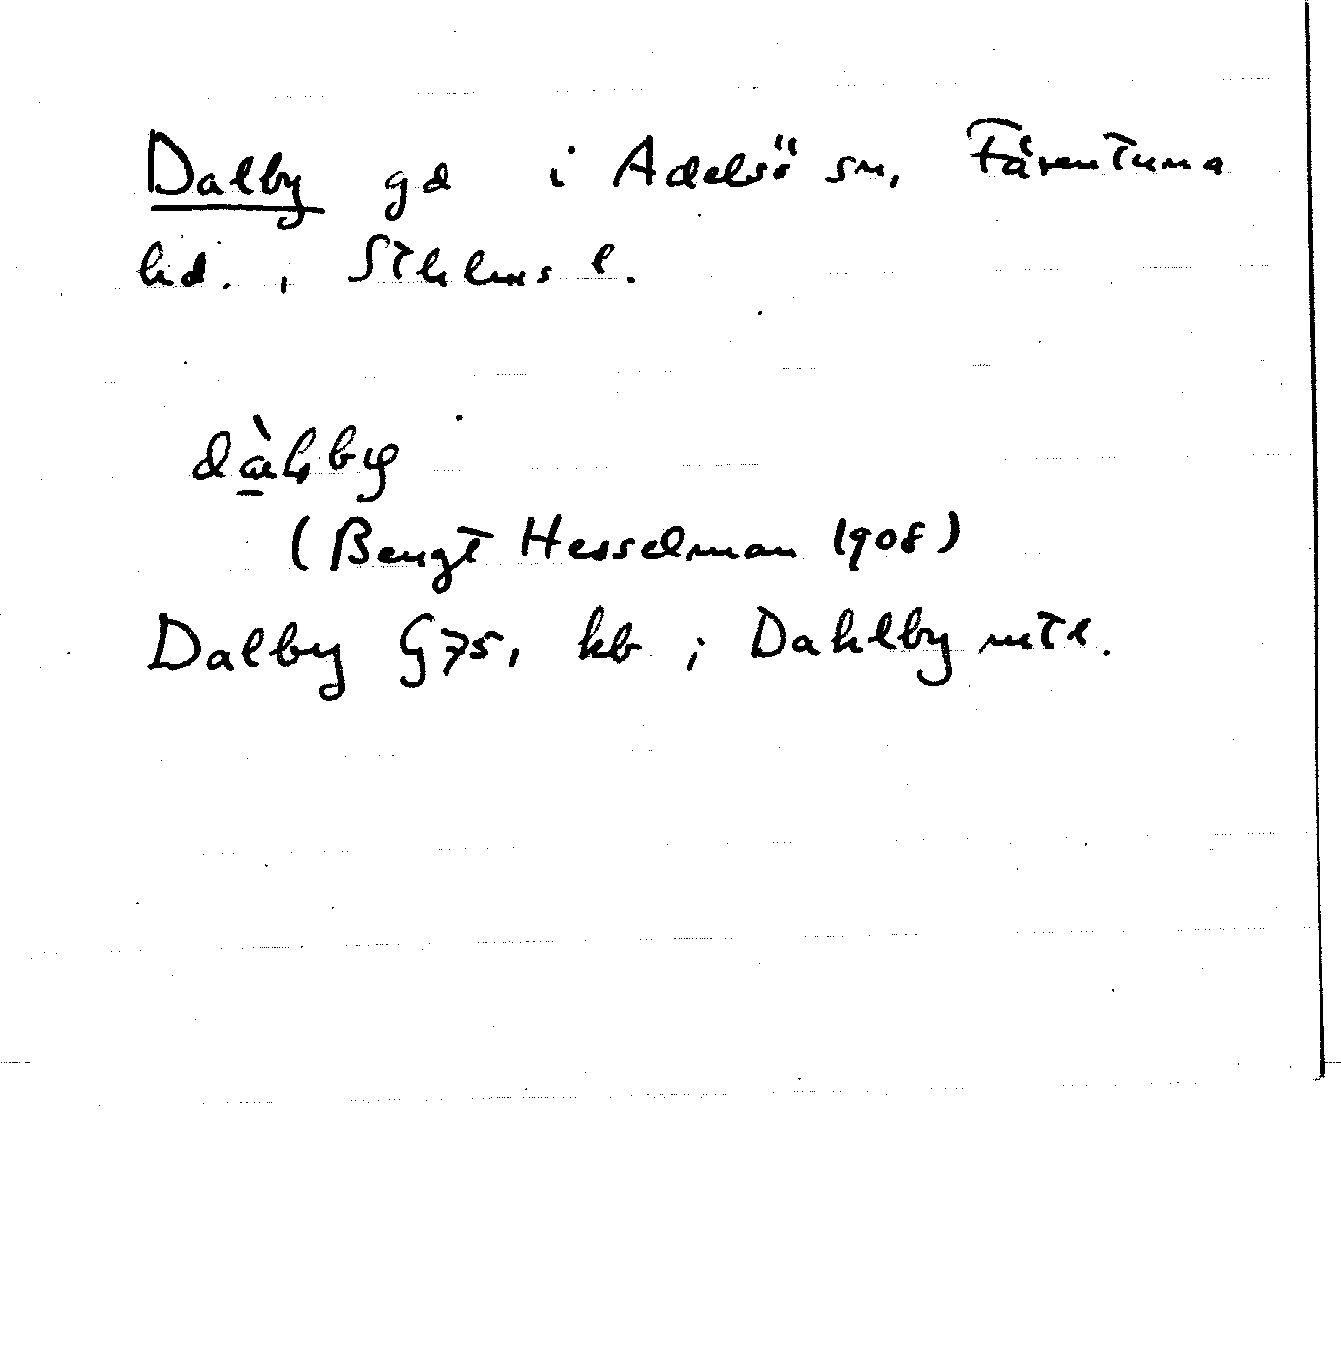 Dalby gd i Adelsö sn, Färentuna
hd., Sthlms l.
dàlby
(Bengt Hesselman 1908)
Dalby G75, kb; Dahlby mtl.